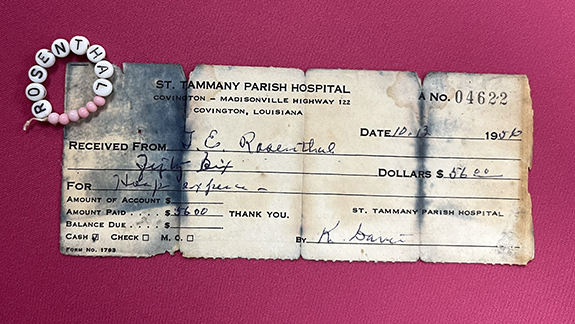 ROSENTHAL
ST. TAMMANY PARISH HOSPITAL
COVINGTON – MADISONVILLE HIGHWAY 122
COVINGTON, LOUISIANA
A No. 04622
DATE 10. 13 1956
RECEIVED FROM J. E. Rosenthal
Fifty Six DOLLARS $ 56.00
FOR Hosp expense –
AMOUNT OF ACCOUNT $
AMOUNT PAID $ 56 00 THANK YOU. ST. TAMMANY PARISH HOSPITAL
BALANCE DUE $
CASH ☑ CHECK ☐ M. O. ☐ BY K. Davis
FORM NO. 1763